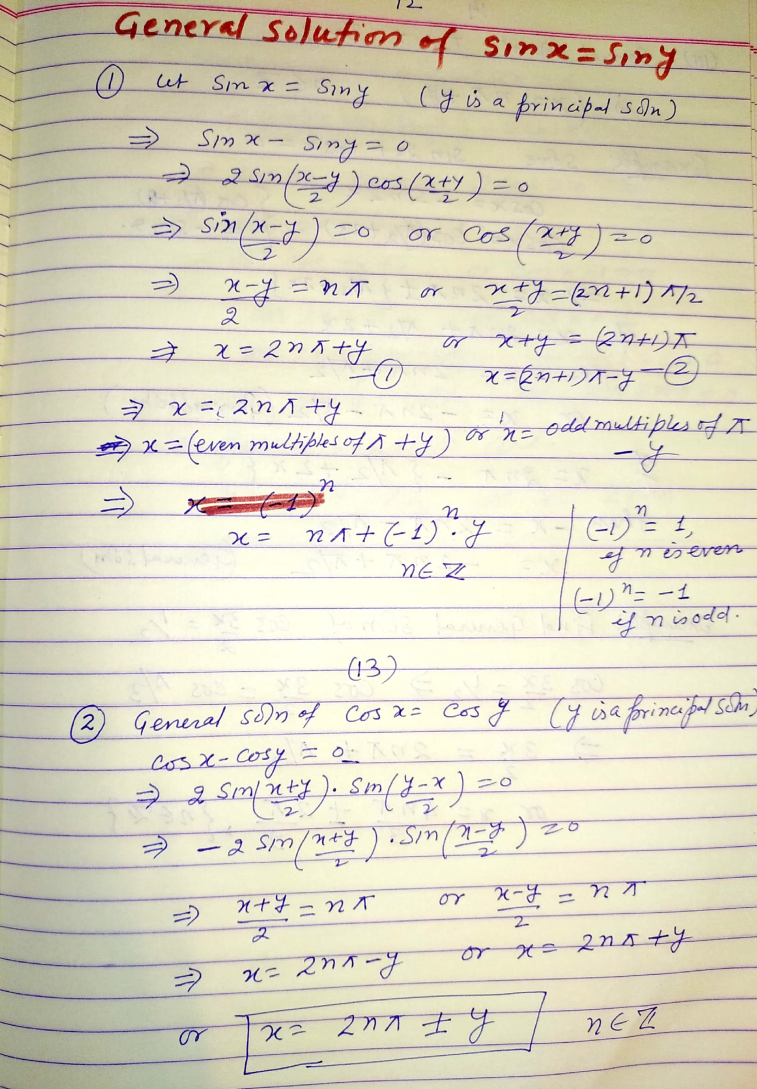 12
General solution of sin x = sin y
① let sin x = sin y (y is a principal soln)
⇒ sin x - sin y = 0
⇒ 2 sin((x-y)/2) cos((x+y)/2) = 0
⇒ sin((x-y)/2) = 0 or cos((x+y)/2) = 0
⇒ (x-y)/2 = nπ or (x+y)/2 = (2n+1)π/2
⇒ x = 2nπ + y —① or x+y = (2n+1)π
x = (2n+1)π - y —②
⇒ x = 2nπ + y
⇒ x = (even multiples of π + y) or x = odd multiples of π
- y
⇒ x = (-1)^n
x = nπ + (-1)^n . y
n ∈ Z
(-1)^n = 1,
if n is even
(-1)^n = -1
if n is odd.
(13)
② General soln of cos x = cos y (y is a principal soln)
cos x - cos y = 0
⇒ 2 sin((x+y)/2) . sin((y-x)/2) = 0
⇒ -2 sin((x+y)/2) . sin((x-y)/2) = 0
⇒ (x+y)/2 = nπ or (x-y)/2 = nπ
⇒ x = 2nπ - y or x = 2nπ + y
or x = 2nπ ± y n ∈ Z